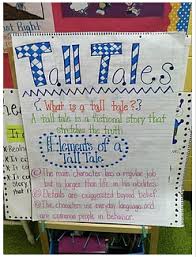 Tall Tales
{What is a tall tale?}
A tall tale is a fictional story that
stretches the truth
Elements of a
Tall Tale
① The main character has a regular job
but is larger than life in his abilities.
② Details are exaggerated beyond belief
③ The characters use everyday language and
are common people in behavior.